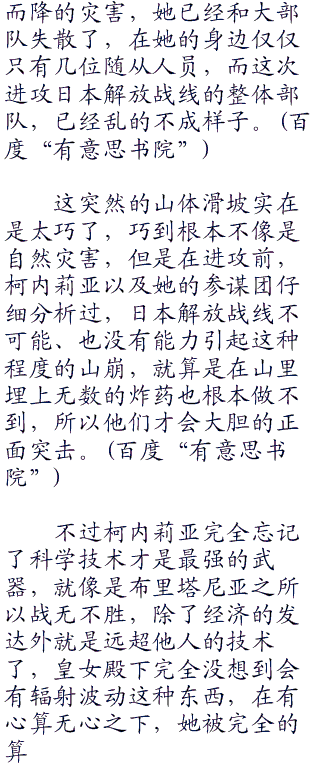 而降的灾害，她已经和大部
队失散了，在她的身边仅仅
只有几位随从人员，而这次
进攻日本解放战线的整体部
队，已经乱的不成样子。(百
度“有意思书院”)
这突然的山体滑坡实在
是太巧了，巧到根本不像是
自然灾害，但是在进攻前，
柯内莉亚以及她的参谋团仔
细分析过，日本解放战线不
可能、也没有能力引起这种
程度的山崩，就算是在山里
埋上无数的炸药也根本做不
到，所以他们才会大胆的正
面突击。(百度“有意思书
院”)
不过柯内莉亚完全忘记
了科学技术才是最强的武
器，就像是布里塔尼亚之所
以战无不胜，除了经济的发
达外就是远超他人的技术
了，皇女殿下完全没想到会
有辐射波动这种东西，在有
心算无心之下，她被完全的
算